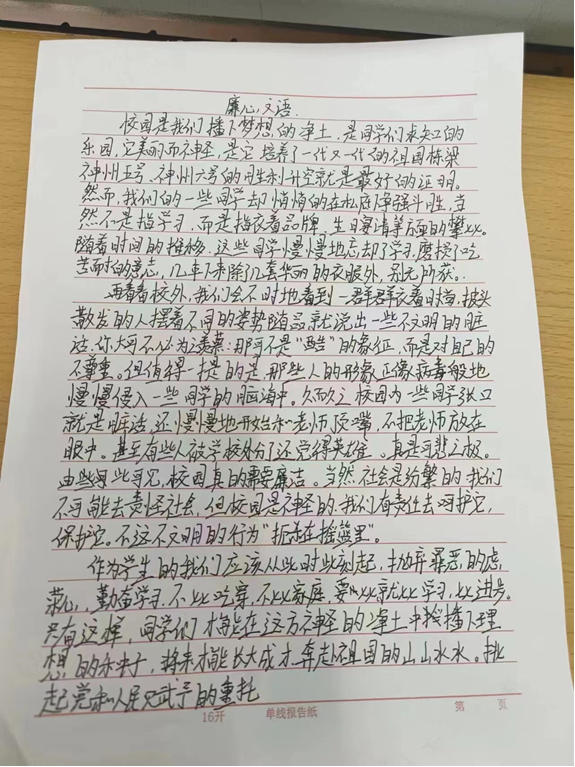 廉心文语.
校园是我们播下梦想的净土，是同学们求知的
乐园，它美丽而神圣，是它培养了一代又一代的祖国栋梁
神州五号、神州六号的胜利升空就是最好的证明。
然而，我们的一些同学却悄悄的在私底下争强斗胜，当
然不是指学习，而是指衣着品牌，生日宴请等方面的攀比。
随着时间的推移，这些同学慢慢地忘却了学习，磨损了吃
苦耐劳的意志，几年下来除了几套华丽的衣服外，别无所获。
再看看校外，我们会不时地看到一群群衣着时髦，披头
散发的人摆着不同的姿势随品就说出一些不文明的脏
话，你大可不必为之羡慕：那可不是“酷”的象征，而是对自己的
不尊重。但值得一提的是，那些人的形象正像病毒般地
慢慢侵入一些同学的脑海中。久而久之校园内一些同学张口
就是脏话，还慢慢地开始和老师顶嘴，不把老师放在
眼中。甚至有些人被学校处分了还觉得英雄。真是可悲之极。
由些可见，校园真的需要廉洁。当然，社会是纷繁的，我们
不可能去责怪社会，但校园是神圣的，我们有责任去呵护它，
保护它。不让不文明的行为“扼走在摇篮里”。
作为学生的我们应该从此时此刻起，抛弃罪恶的虚
荣心，勤奋学习，不比吃穿，不比家庭，要比就比学习，比进步。
只有这样，同学们才能在这方神圣的净土中播下理
想的种子，将来才能长大成才，奔走祖国的山山水水。挑
起党和人民赋予的重托
16开 单线报告纸 第 页